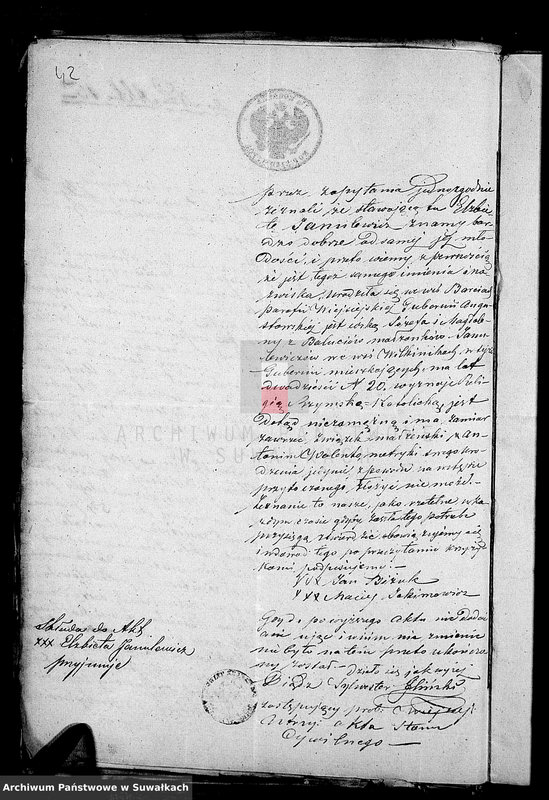 42
przez zapytania jednozgodnie
zeznali że stawającą tu Elżbie
tę Janulewicz znamy bar
dzo dobrze od samej jej mło
dości, i przeto wiemy z pewnością
że jest tegoż samego imienia i na
zwiska, urodziła się we wsi
parafii Wiejsiejskiej Gubernii Augu
stowskiej jest córką Józefa i Magdale
ny z małżonków Janu
lewiczów we wsi w tejże
Gubernii mieszkających, ma lat
dwadzieścia N 20. wyznaje Reli
gią Rzymsko Katolicką, jest
dotąd niezamężną i ma zamiar
zawrzeć związek małżeński z An
tonim metryki swego uro
dzenia jedynie z powodu na wstępie
przytoczonego, złożyć nie może.
Zeznanie to nasze, jako rzetelne w ka
żdym czasie gdyby zaszła tego potrzeba
przysięgą stwierdzić obowiązujemy się
i na dowód tego po przeczytaniu krzyży
kami podpisujemy.—
XXX Jan
XXX Maciej Jakimowicz
Gdy do powyższego Aktu nic dodać
ani ująć i w nim nic zmienić
nie było na tem przeto ukończo
ny został — działo się jak wyżej
Sylwester
zastępujący
akta Stanu
Cywilnego —
Składa do Akt
XXX Elżbieta Janulewicz
przyjmuje
ARCHIWUM
W SU
Archiwum Państwowe w Suwałkach